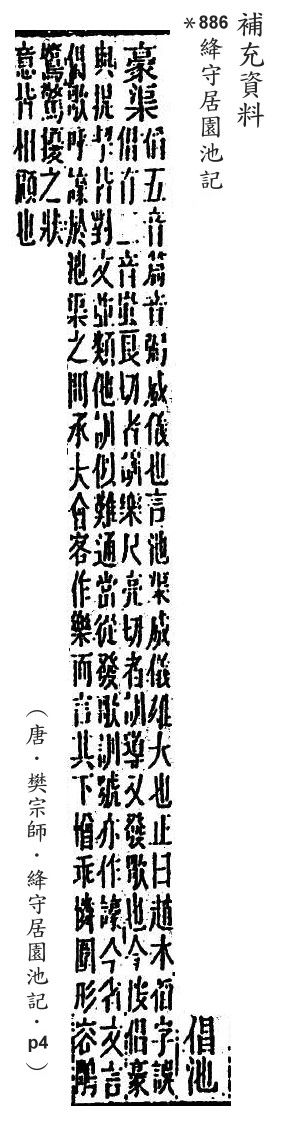 補充資料
*886 絳守居園池記
倡池
豪渠 五音篇音弼威儀也言池渠威儀雄大也止曰趙本字誤
倡有二音蚩良切者訓樂尺亮切者訓導又發歌也今按倡豪
與提挈皆對文並類他訓似難通當從發歌訓號亦作謼今文言
倡歌呼謼於池渠之間承大會客作樂而言其下憎乖憐圍形容
鶩驚擾之狀
意皆相顧也
(唐．樊宗師．絳守居園池記．p4)